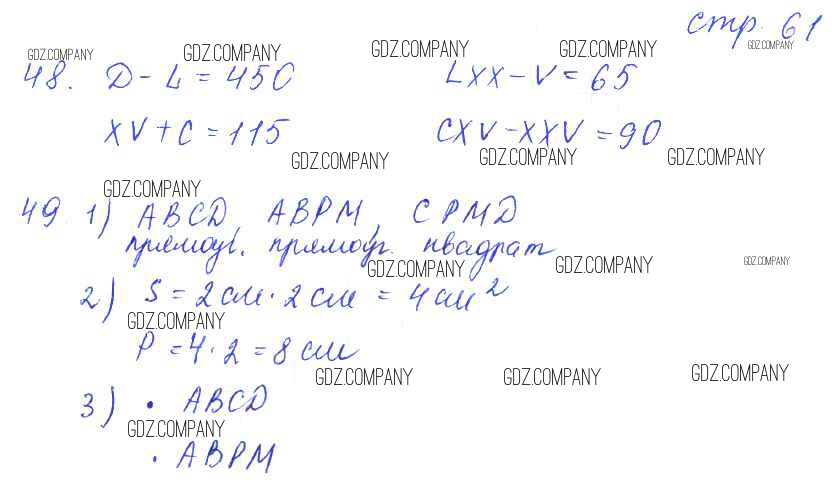 стр. 61
GDZ.COMPANY GDZ.COMPANY GDZ.COMPANY GDZ.COMPANY GDZ.COMPANY
48. D - L = 450 LXX - V = 65
XV + C = 115 CXV - XXV = 90
GDZ.COMPANY GDZ.COMPANY GDZ.COMPANY
GDZ.COMPANY
49 1) ABCD, ABPM, CPMD
прямоуг. прямоуг. квадрат
GDZ.COMPANY GDZ.COMPANY GDZ.COMPANY
2) S = 2 см · 2 см = 4 см²
GDZ.COMPANY
P = 4 · 2 = 8 см
GDZ.COMPANY GDZ.COMPANY GDZ.COMPANY
3) • ABCD
GDZ.COMPANY
• ABPM